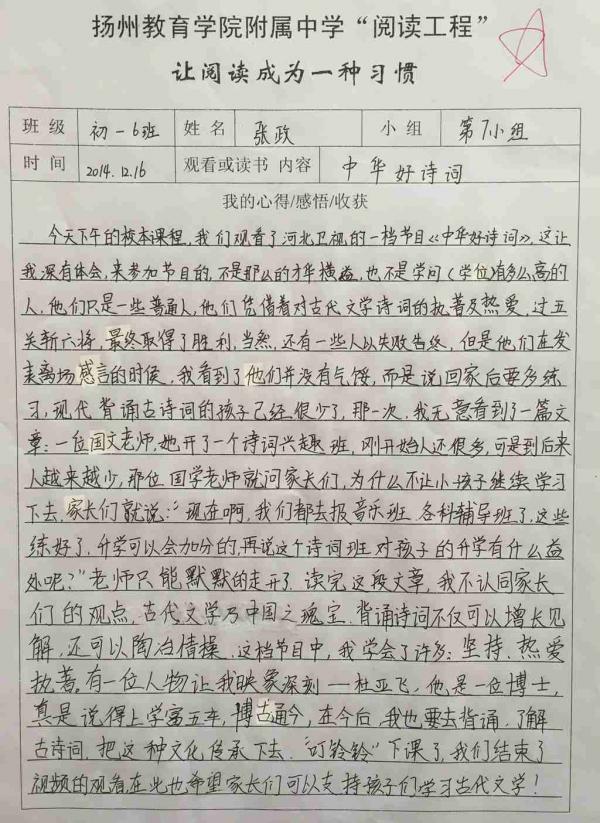 扬州教育学院附属中学“阅读工程”
让阅读成为一种习惯
班级 初一6班 姓名 张政 小组 第7小组
时间 2014.12.16 观看或读书 内容 中华好诗词
我的心得/感悟/收获
今天下午的校本课程，我们观看了河北卫视的一档节目《中华好诗词》，这让
我深有体会，来参加节目的，不是那么的才华横益，也不是学问（学位）有多么高的
人，他们只是一些普通人，他们凭借着对古代文学诗词的执著及热爱，过五
关斩六将，最终取得了胜利，当然，还有一些人以失败告终，但是他们在发
表离场感言的时候，我看到了他们并没有气馁，而是说回家后要多练
习，现代背诵古诗词的孩子已经很少了，那一次，我无意看到了一篇文
章：一位国文老师，她开了一个诗词兴趣班，刚开始人还很多，可是到后来
人越来越少，那位国学老师就问家长们，为什么不让小孩子继续学习
下去，家长们就说：“现在啊，我们都去报音乐班、各科辅导班了，这些
练好了，升学可以会加分的，再说这个诗词班对孩子的升学有什么益
处呢？”老师只能默默的走开了，读完这段文章，我不认同家长
们的观点，古代文学乃中国之瑰宝，背诵诗词不仅可以增长见
解，还可以陶冶情操，这档节目中，我学会了许多：坚持、热爱
执著。有一位人物让我映象深刻——杜亚飞，他是一位博士，
真是说得上学富五车，博古通今，在今后，我也要去背诵、了解
古诗词，把这种文化传承下去，“叮铃铃”下课了，我们结束了
视频的观看，在此也希望家长们可以支持孩子们学习古代文学！